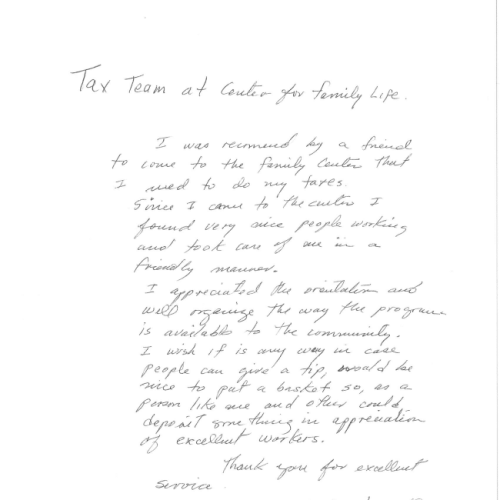 Tax Team at Center for Family Life.
I was recomend by a friend
to come to the family Center that
I used to do my taxes.
Since I came to the center I
found very nice people working
and took care of me in a
friendly manner.
I appreciated the orientation and
well organize the way the program
is available to the community.
I wish if is any way in case
people can give a tip, would be
nice to put a basket so, as a
person like me and other could
deposit something in appreciation
of excellent workers.
Thank you for excellent
service